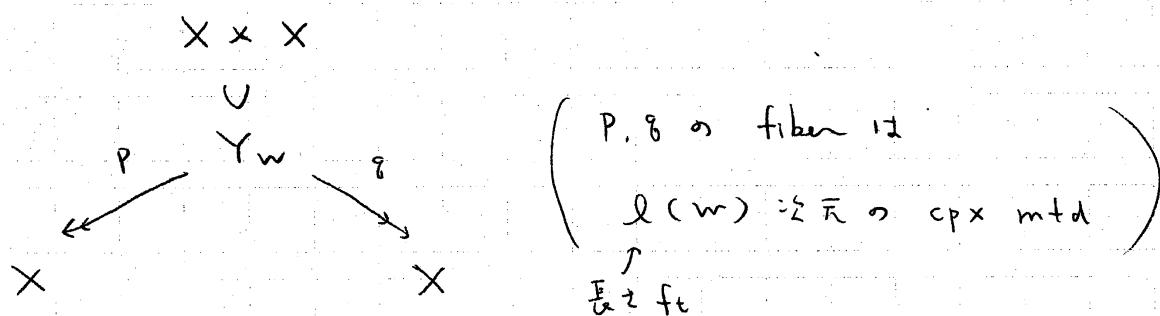 X × X
∪
Y_w
p q
X X
( p, q の fiber は
l(w) 次元の cpx mfd )
↑
長さ ft